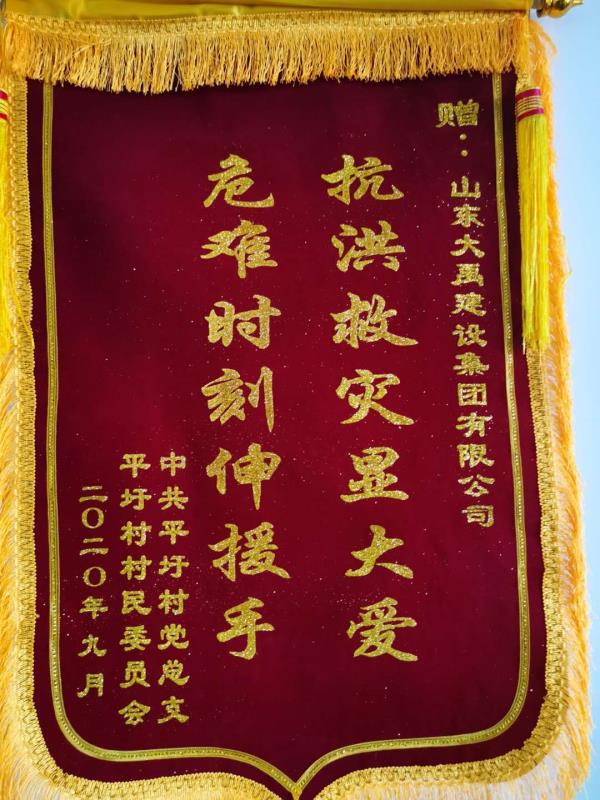 赠：山东大禹建设集团有限公司
抗洪救灾显大爱
危难时刻伸援手
中共平圩村党总支
平圩村村民委员会
二〇二〇年九月